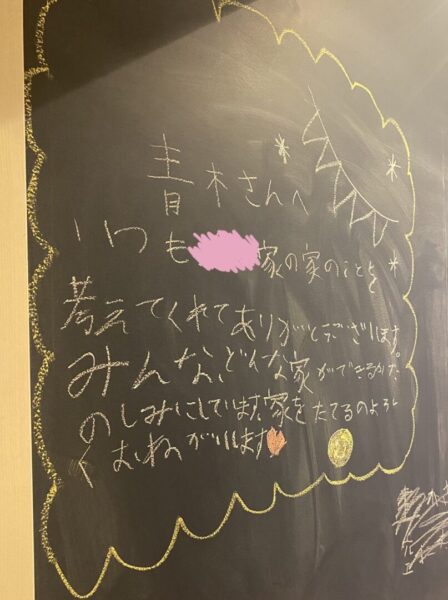 青木さんへ
いつも 家の家のことを
考えてくれてありがとうございます
みんな、どんな家ができるかた
のしみにしています。家をたてるのよろし
くおねがいします